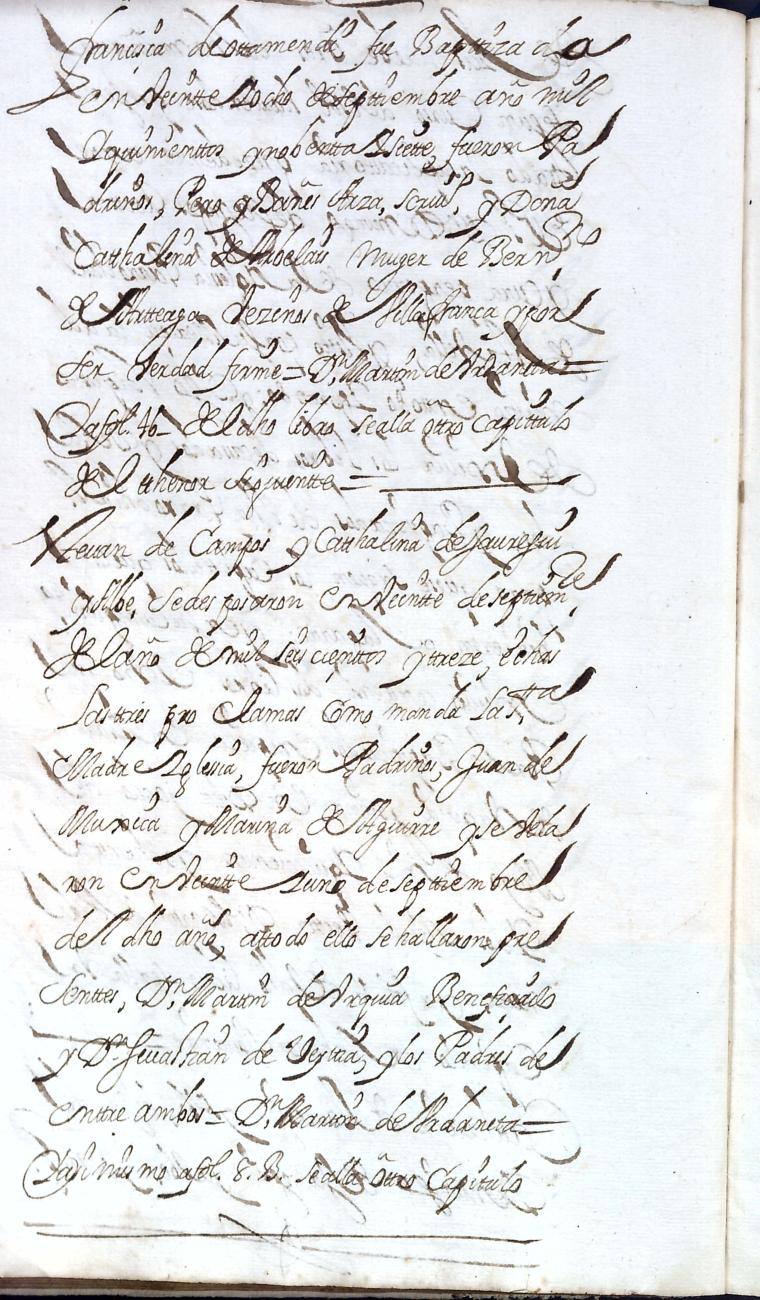 francisca de ottamendi fue Baptiza da
en Veintte Yocho de septtiembre año mil
Yquinienttos y nobentta Ysiette, fueron Pa
drinos, Pero y Bañes Arza, scriu.º, y Doña
Catthalina de Arbelais Muger de Bern.do
de Artteaga Vezinos de Villafranca y por
ser Verdad firme = D.n Martin de Vrdaneta =
Yafol. 46 - de el dho libro se alla otro Capittulo
de el thenor siguientte =
Steuan de Campos y Catthalina de Jauregui
y Albe, se desposaron en Veintte de septtiem.re
de el año de mil seiscienttos y treze, echas
las ttres pro clamas Como manda la s.ta
Madre Yglesia, fueron Padrinos, Juan de
Muxica y Marina de Aguirre y se Vela
ron en Veintte Yuno de septtiembre
del dho año, attodo ello se hallaron pre
senttes, D.n Martin de Vrquia Beneficiado
y D.n Seuastian de Veytia, y los Padres de
enttre ambos = D.n Martin de Vrdaneta =
Yasimismo afol. 8. B. se alla ottro Capitulo